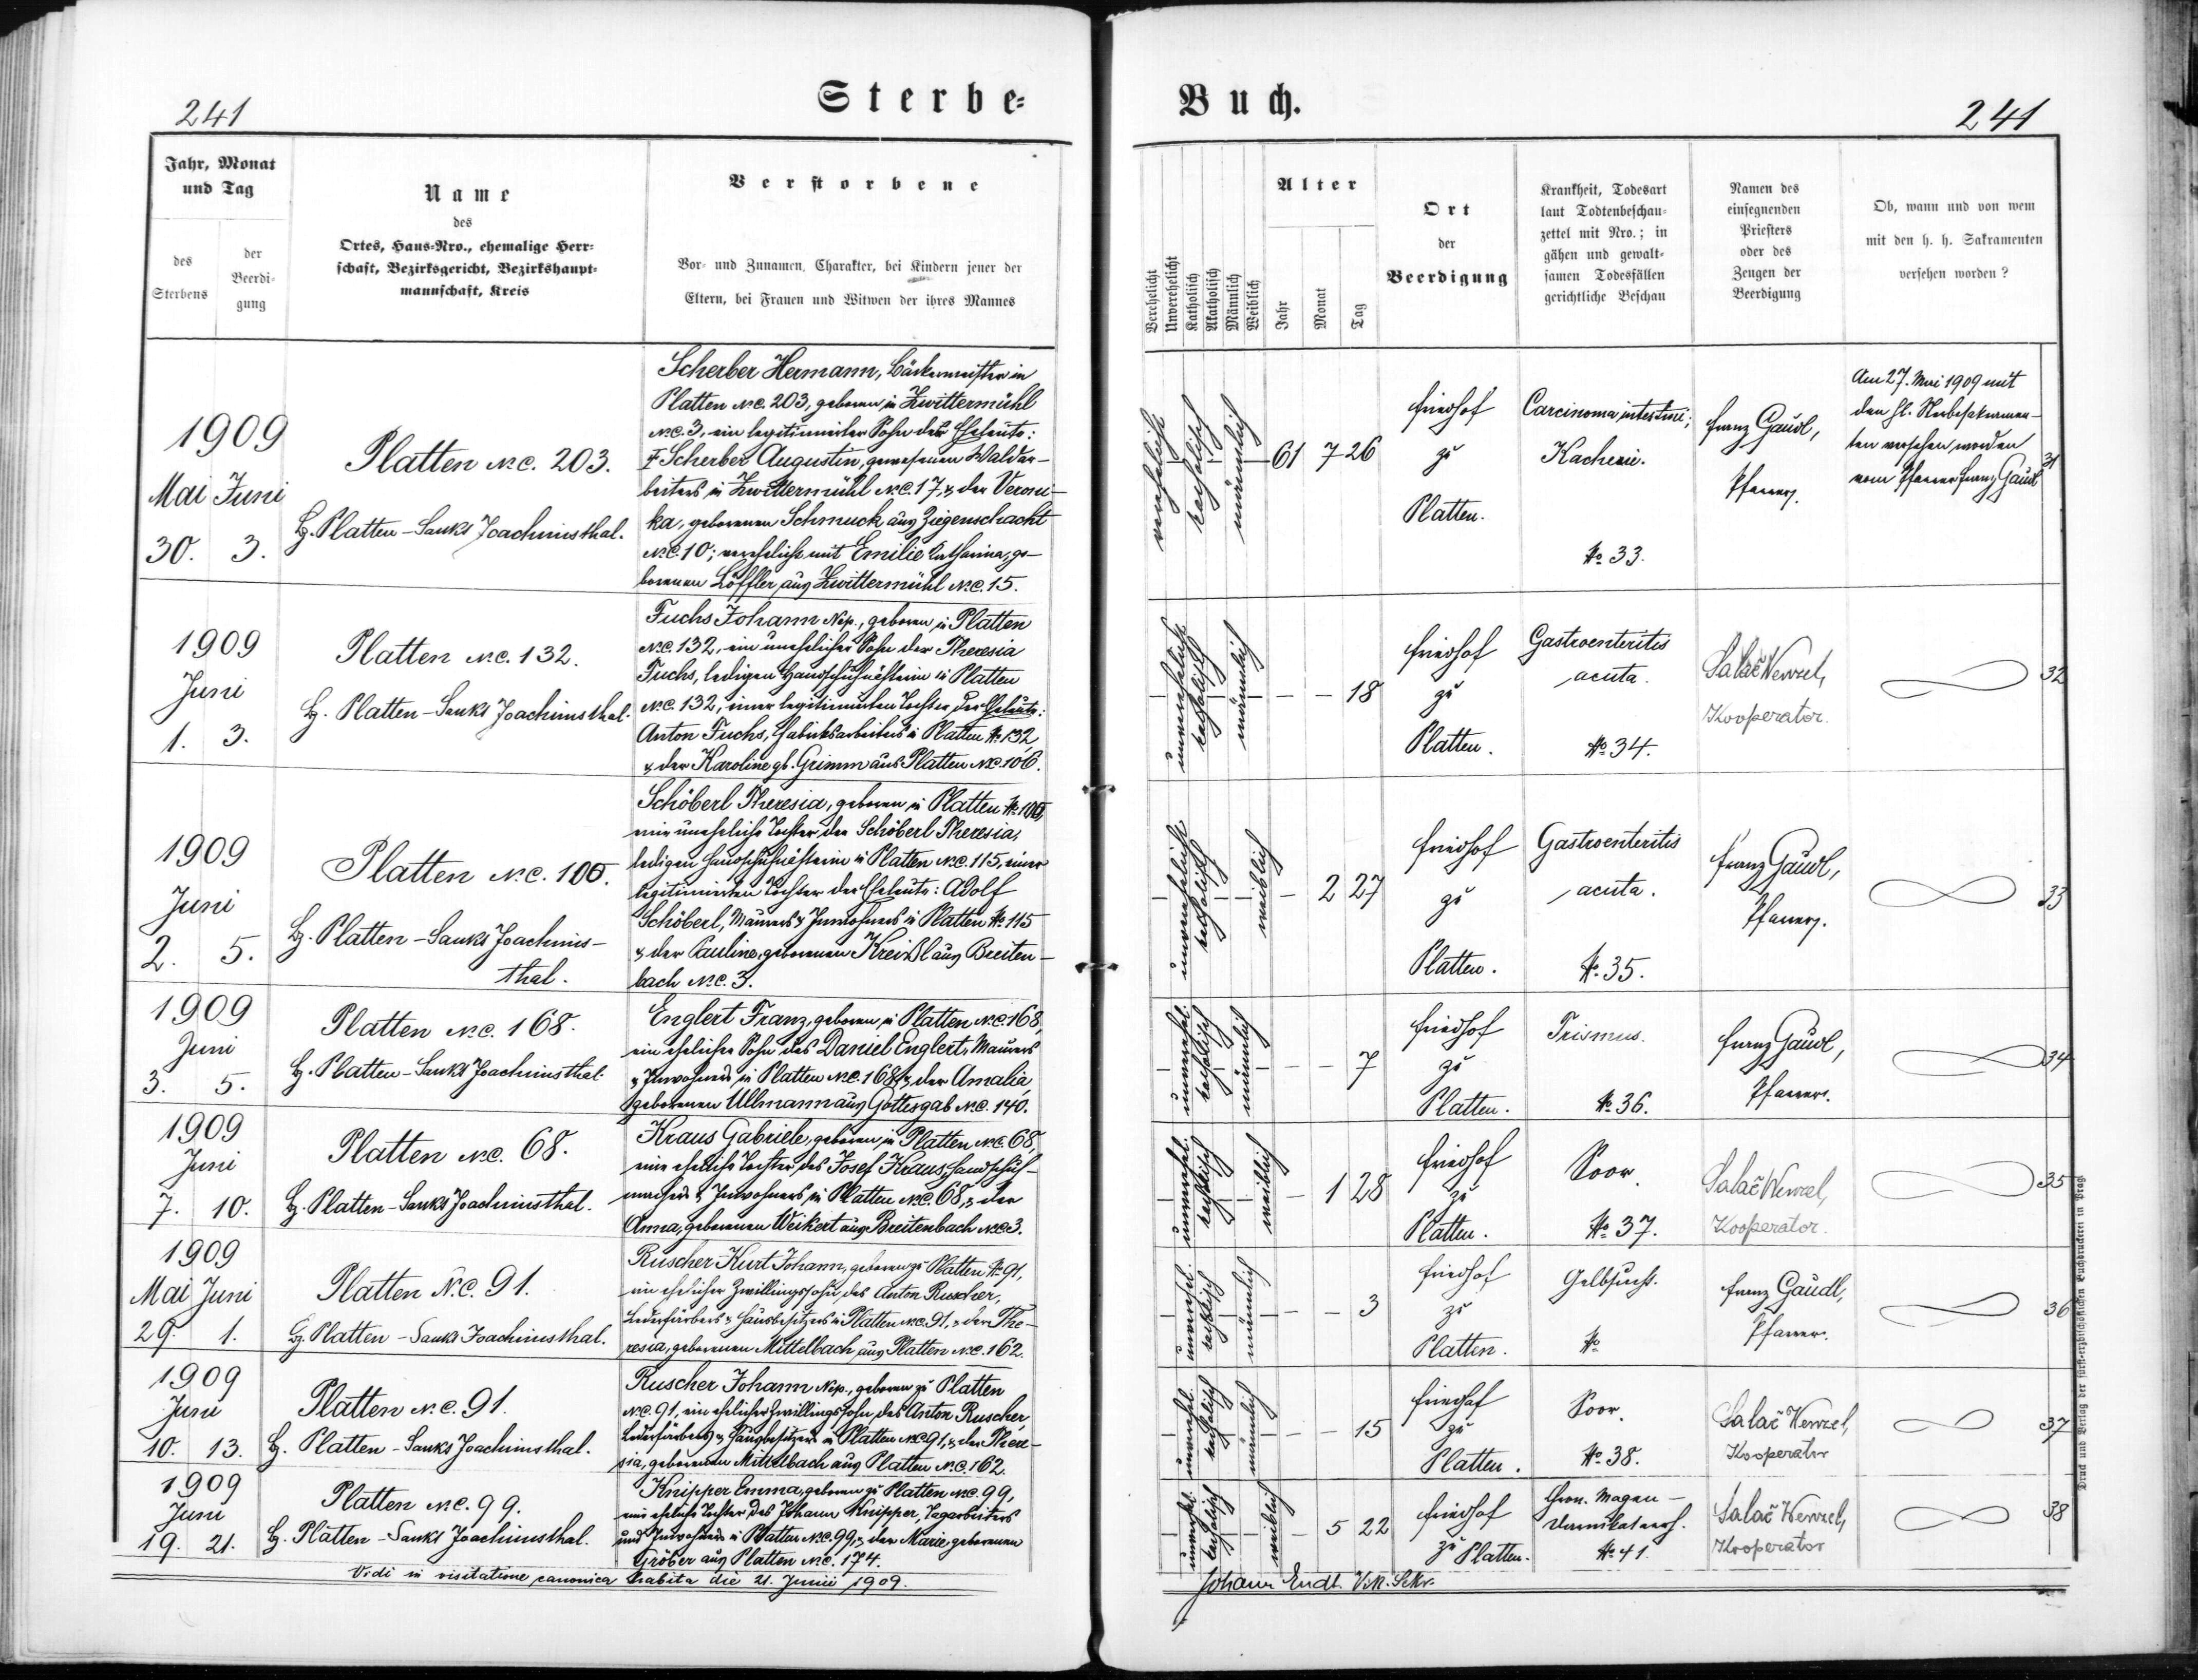 241
Sterbe-
Jahr, Monat
und Tag
des
Sterbens
der
Beerdi-
gung
Name
des
Ortes, Haus-Nro., ehemalige Herr-
schaft, Bezirksgericht, Bezirkshaupt-
mannschaft, Kreis
Verstorbene
Vor- und Zunamen, Charakter, bei Kindern jener der
Eltern, bei Frauen und Witwen der ihres Mannes
1909
Mai Juni
30. 3.
Platten N.C. 203.
Bz. Platten - Sankt Joachimsthal.
Scherber Hermann, Bäckermeister in
Platten N.C. 203, geboren in Zwittermühl
N.C. 3, ein legitimirter Sohn der Eheleute:
† Scherber Augustin, gewesenen Waldar-
beiters in Zwittermühl N.C. 17, & der Veroni-
ka, geborenen Schmuck aus Ziegenschacht
N.C. 10; verehelicht mit Emilie Katharina, ge-
borenen Löffler, aus Zwittermühl N.C. 15.
1909
Juni
1. 3.
Platten N.C. 132.
Bz. Platten - Sankt Joachimsthal.
Fuchs Johann Nep., geboren in Platten
N.C. 132, ein unehelicher Sohn der Theresia
Fuchs, ledigen Handschuhnähterin in Platten
N.C. 132, einer legitimirten Tochter der Eheleute:
Anton Fuchs, Fabriksarbeiters in Platten № 132
& der Karoline gb. Grimm aus Platten N.C. 106.
1909
Juni
2. 5.
Platten N.C. 100.
Bz. Platten - Sankt Joachims-
thal.
Schöberl Theresia, geboren in Platten № 100,
eine uneheliche Tochter der Schöberl Theresia,
ledigen Handschuhnähterin in Platten N.C. 115, einer
legitimirten Tochter der Eheleute: Adolf
Schöberl, Maurers & Inwohners in Platten № 115
& der Pauline, geborenen Kreißl aus Breiten-
bach N.C. 3.
1909
Juni
3. 5.
Platten N.C. 168.
Bz. Platten - Sankt Joachimsthal.
Englert Franz, geboren in Platten N.C. 168,
ein ehelicher Sohn des Daniel Englert, Maurers
& Inwohners in Platten N.C. 168, & der Amalia,
geborenen Ullmann aus Gottesgab N.C. 140.
1909
Juni
7. 10.
Platten N.C. 68.
Bz. Platten - Sankt Joachimsthal.
Kraus Gabriele, geboren in Platten N.C. 68,
eine eheliche Tochter des Josef Kraus, Handschuh-
machers & Inwohners in Platten N.C. 68, & der
Anna, geborenen Weikert aus Breitenbach N.C. 3.
1909
Mai Juni
29. 1.
Platten N.C. 91.
Bz. Platten - Sankt Joachimsthal.
Ruscher Kurt Johann, geboren zu Platten № 91,
ein ehelicher Zwillingssohn des Anton Ruscher,
Lederfärbers & Hausbesitzers in Platten N.C. 91, & der The-
resia, geborenen Mittelbach aus Platten N.C. 162.
1909
Juni
10. 13.
Platten N.C. 91.
Bz. Platten - Sankt Joachimsthal.
Ruscher Johann Nep., geboren zu Platten
N.C. 91, ein ehelicher Zwillingssohn des Anton Ruscher
Lederfärbers & Hausbesitzers in Platten N.C. 91, & der There-
sia, geborenen Mittelbach aus Platten N.C. 162.
1909
Juni
19. 21.
Platten N.C. 99.
Bz. Platten - Sankt Joachimsthal.
Knipper Emma, geboren zu Platten N.C. 99,
eine eheliche Tochter des Johann Knipper, Tagarbeiters
und Inwohners in Platten N.C. 99, & der Marie, geborenen
Gröber aus Platten N.C. 174.
Vidi in visitatione canonica habita die 21. Junii 1909.
Buch.
241
Verehelicht
Unverehelicht
Katholisch
Akatholisch
Männlich
Weiblich
Alter
Jahr
Monat
Tag
Ort
der
Beerdigung
Krankheit, Todesart
laut Todtenbeschau-
zettel mit Nro.; in
gähen und gewalt-
samen Todesfällen
gerichtliche Beschau
Namen des
einsegnenden
Priesters
oder des
Zeugen der
Beerdigung
Ob, wann und von wem
mit den h. h. Sakramenten
versehen worden?
verehelicht
katholisch
männlich
61 7 26
Friedhof
zu
Platten.
Carcinoma intestini;
Kachexie.
№ 33.
Franz Gaudl,
Pfarrer.
Am 27. Mai 1909 mit
den hl. Sterbesakramen-
ten versehen worden
vom Pfarrer Franz Gaudl
31
unverehelicht
katholisch
männlich
- - 18
Friedhof
zu
Platten.
Gastroenteritis
acuta.
№ 34.
Salač Wenzel,
Kooperator.
32
unverehelicht
katholisch
weiblich
- 2 27
Friedhof
zu
Platten.
Gastroenteritis
acuta.
№ 35.
Franz Gaudl,
Pfarrer.
33
unverehel.
katholisch
männlich
- - 7
Friedhof
zu
Platten.
Trismus.
№ 36.
Franz Gaudl,
Pfarrer.
34
unverehel.
katholisch
weiblich
- 1 28
Friedhof
zu
Platten.
Soor.
№ 37.
Salač Wenzel,
Kooperator.
35
unverehel.
katholisch
männlich
- - 3
Friedhof
zu
Platten.
Gelbsucht.
№
Franz Gaudl,
Pfarrer.
36
unverehel.
katholisch
männlich
- - 15
Friedhof
zu
Platten.
Soor.
№ 38.
Salač Wenzel,
Kooperator
37
unverehel.
katholisch
weiblich
- 5 22
Friedhof
zu Platten.
Chron. Magen-
Darmkatarrh.
№ 41.
Salač Wenzel,
Kooperator
38
Johann Endt. Vik. Sekr.
Druck und Verlag der fürst-erzbischöflichen Buchdruckerei in Prag.